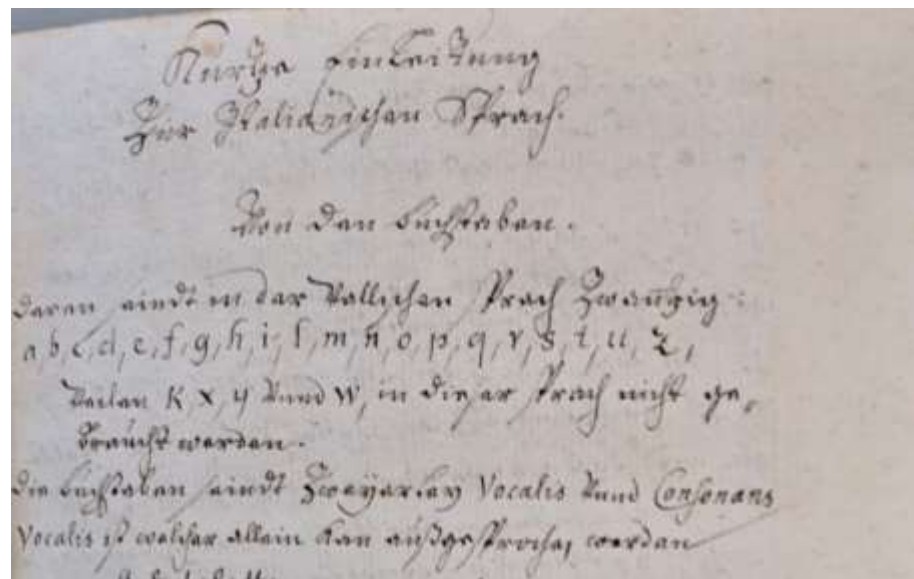 Kurtze Einleitung
Zur Italianischen Sprach.
Von den Buchstaben.
Deren seindt in der Wellischen Sprach Zwantzig:
a, b, c, d, e, f, g, h, i, l, m, n, o, p, q, r, s, t, u, z,
Weilen K, x, y vnnd w, in dieser sprach nicht ge-
braucht werden.
Die buchstaben seindt Zweyerley Vocalis vnnd Consonans
Vocalis ist welcher allein kan außgesprochen werden